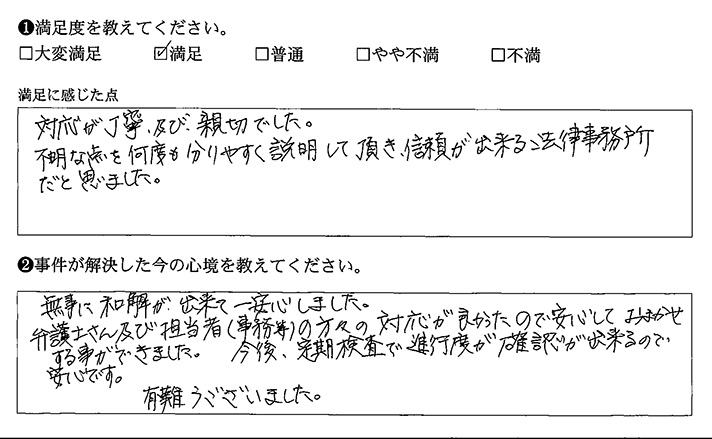 ❶満足度を教えてください。
□大変満足 ☑満足 □普通 □やや不満 □不満
満足に感じた点
対応が丁寧、及び、親切でした。
不明な点を何度も分りやすく説明して頂き、信頼が出来る法律事務所
だと思いました。
❷事件が解決した今の心境を教えてください。
無事に和解が出来て一安心しました。
弁護士さん及び担当者(事務等)の方々の対応が良かったので安心しておまかせ
する事ができました。 今後、定期検査で進行度が確認が出来るので
安心です。
有難うございました。